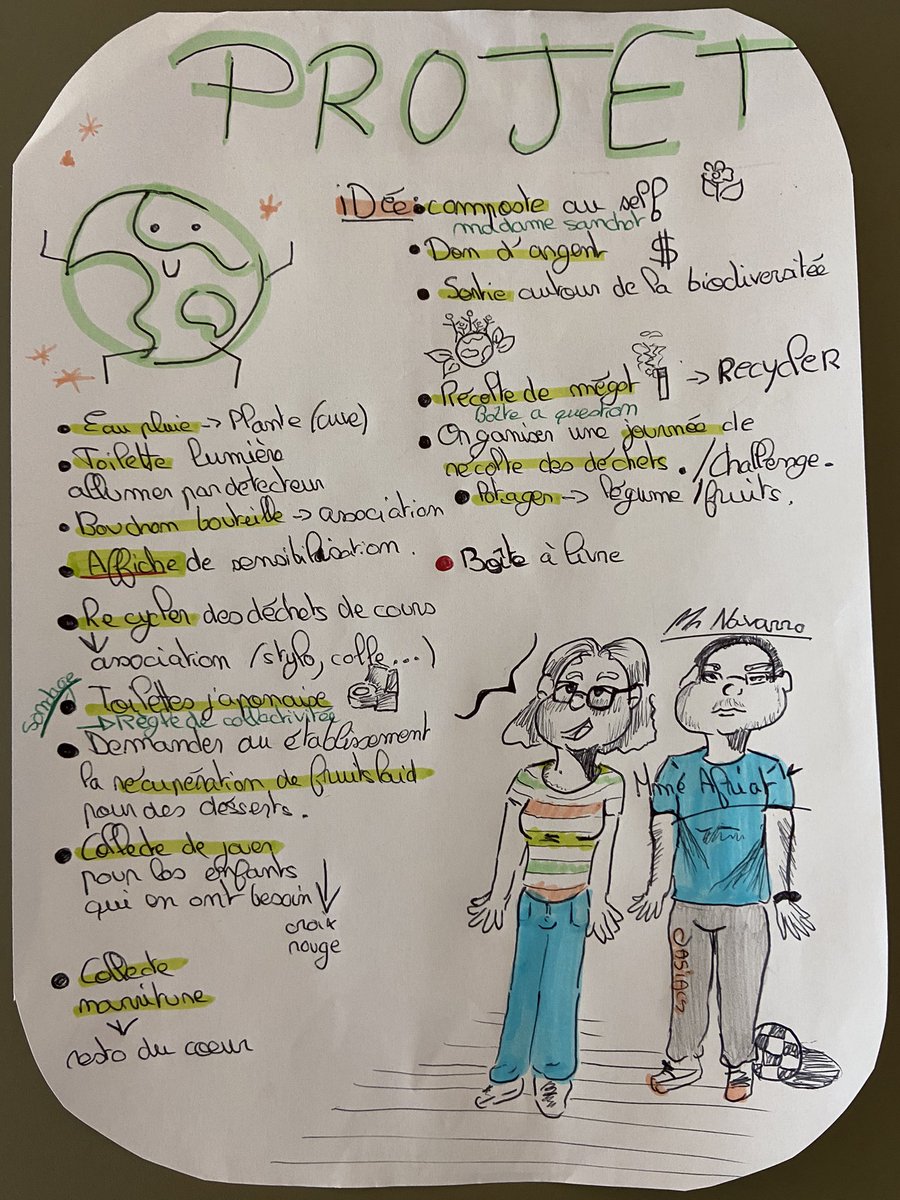 PROJET
iDée : composte au self
maddame sanchot
• Don d'argent $
• Sortie autour de la biodiversitée
• Récolte de mégot → RECYCLER
Boîte a question
• Organiser une journée de
récolte des déchets. / challenge.
• Potager → légume / fruits.
• Boîte à livre
• Eau pluie → Plante (cuve)
• Toilette lumière
allumer par detecteur
• Bouchon bouteille → association
• Affiche de sensibilisation.
• Recycler des déchets de cours
↓
association (stylo, colle...)
sondage
• Toilettes japonaise
→ Règle de collectivitée
• Demander au établissement
la récupération de fruits laid
pour des desserts.
• Collecte de jouer
pour les enfants
qui en ont besoin ↓
croix
rouge
• Collecte
nourriture
↓
resto du coeur
Mr Navarro
Mmé Afriat